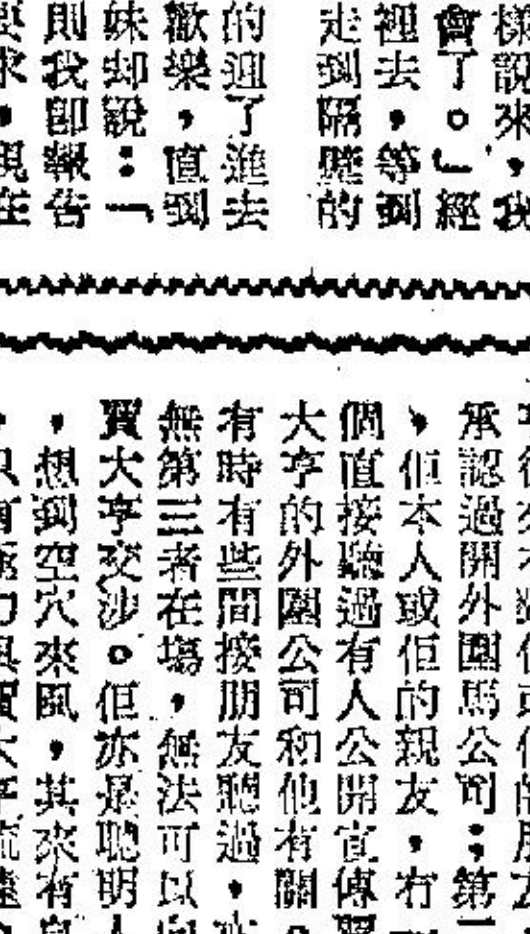 樣說來,我
會了。」經
裡去,等到
走到隔壁的
的迎了進去
歡樂,直到
妹却說:「
則我卽報告
求,現在
承認過開外圍馬公司;第
,佢本人或佢的親友,冇
個直接聽過有人公開宣傳
大亨的外圍公司和他有關
有時有些間接朋友聽過,
無第三者在場,無法可以
賈大亨交涉。佢亦是聰明
,想到空穴來風,其來有